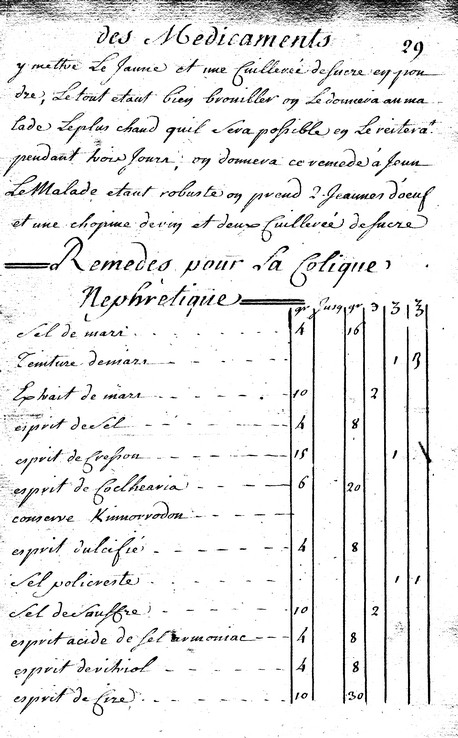 des Medicaments 29
y mettre Le Jaune et une Cuilleree de sucre en pou
dre, Le tout etant bien brouiller on Le donnera au ma
lade Le plus chaud quil sera possible en Le reiterat
pendant trois Jours, on donnera ce remede à Jeun
Le Malade etant robuste on prend 2 Jeaunes d'oeuf
et une chopine de vin et deux Cuillereé de sucre
Remedes pour La Colique
Nephrètique
gr Jusq gr
Sel de mars 4 16
Teinture de mars 1
Extrait de mars 10 2
esprit de Sel 4 8
esprit de Cresson 15 1
esprit de Coclhearia 6 20
conserve Kinnorrodon
esprit dulcifié 4 8
Sel policreste 1 1
Sel de Sauffre 10 2
esprit acide de sel armoniac 4 8
esprit de vitriol 4 8
esprit de Cire 10 30